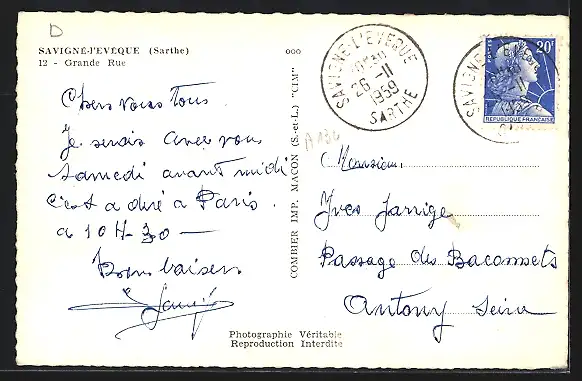 D
SAVIGNÉ-l'EVÊQUE (Sarthe)
12 - Grande Rue
Chers vous tous
Je serais avec vous
Samedi avant midi
C'est a dire a Paris.
a 10H-30 —
Bons baisers
COMBIER IMP. MACON (S.-et-L.) "CIM"
Photographie Véritable
Reproduction Interdite
SAVIGNE-L'EVEQUE
26-11
1959
SARTHE
20F
REPUBLIQUE FRANÇAISE
Monsieur
Yves Jarrige
Passage des
Antony Seine